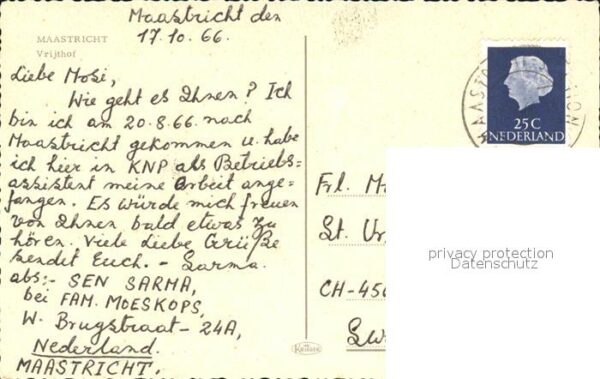 Maastricht den
17.10.66.
MAASTRICHT
Vrijthof
Liebe Mosi,
Wie geht es Ihnen? Ich
bin ich am 20.8.66. nach
Maastricht gekommen u. habe
ich hier in KNP als Betriebs=
assistent meine Arbeit ange=
fangen. Es würde mich freuen
von Ihnen bald etwas zu
hören. Viele liebe Grüße
sendet Euch. - Sarma.
abs:- SEN SARMA,
bei FAM. MOESKOPS,
W. Brugstraat - 24A,
Nederland.
MAASTRICHT.
25C
NEDERLAND
MAAST
Frl. M
St. Ur
CH-450
SW
privacy protection
Datenschutz